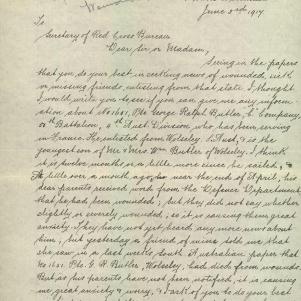 June 2nd 1917
To
Secretary of Red Cross Bureau
Dear Sir or Madam,
Seeing in the papers
that you do your best in getting news of wounded, sick
or missing friends, enlisting from that state I thought
I would write you to see if you can give me any inform
ation about No 1601. Pte George Ralph Butler C Company,
50th Battalion, 4th Aust. Division, who has been serving
in France. He enlisted from Wolseley S. Aust, & is the
youngest son of Mr & Mrs Wm Butler of Wolseley. I think
it is twelve months or a little more since he sailed, &
a little over a month ago near the end of April, his
dear parents received word from the Defence Department
that he had been wounded, but they did not say whether
slightly or severely wounded, so it is causing them great
anxiety. They have not yet heard any more news about
him, but yesterday a friend of mine told me that
she saw in a last week's South Australian paper that
No 1601. Pte G. R. Butler, Wolseley, had died from wounds
But as his parents, have not been notified, it is causing
me great anxiety & worry, & I ask of you to do your best